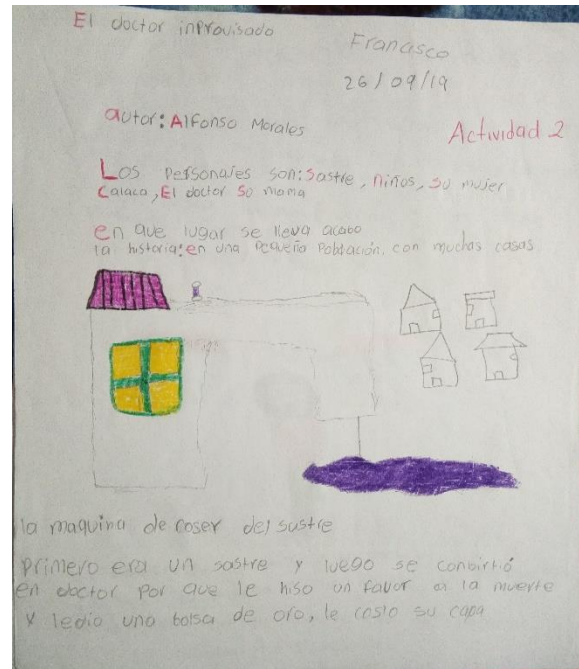 El doctor inprovisado
Francisco
26/09/19
autor: Alfonso Morales
Actividad 2
Los personajes son: Sastre, niños, su mujer
Calaca, El doctor Su mama
en que lugar se lleva acabo
la historia: en una Pequeña Población, con muchas casas
la maquina de coser del sustre
Primero era un sastre y luego se conbirtió
en doctor por que le hiso un favor a la muerte
y ledio una bolsa de oro, le costo su capa